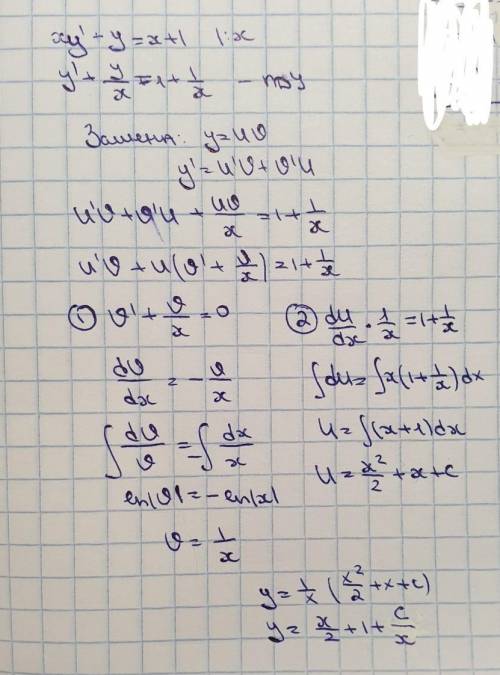 xy' - y = x + 1 | : x
y' + y/x = 1 + 1/x — ЛДУ
Замена: y = uv
y' = u'v + v'u
u'v + v'u + uv/x = 1 + 1/x
u'v + u(v' + v/x) = 1 + 1/x
① v' + v/x = 0
dv/dx = - v/x
∫ dv/v = - ∫ dx/x
ln|v| = - ln|x|
v = 1/x
② du/dx · 1/x = 1 + 1/x
∫ du = ∫ x(1 + 1/x) dx
u = ∫ (x + 1) dx
u = x²/2 + x + c
y = 1/x (x²/2 + x + c)
y = x/2 + 1 + c/x